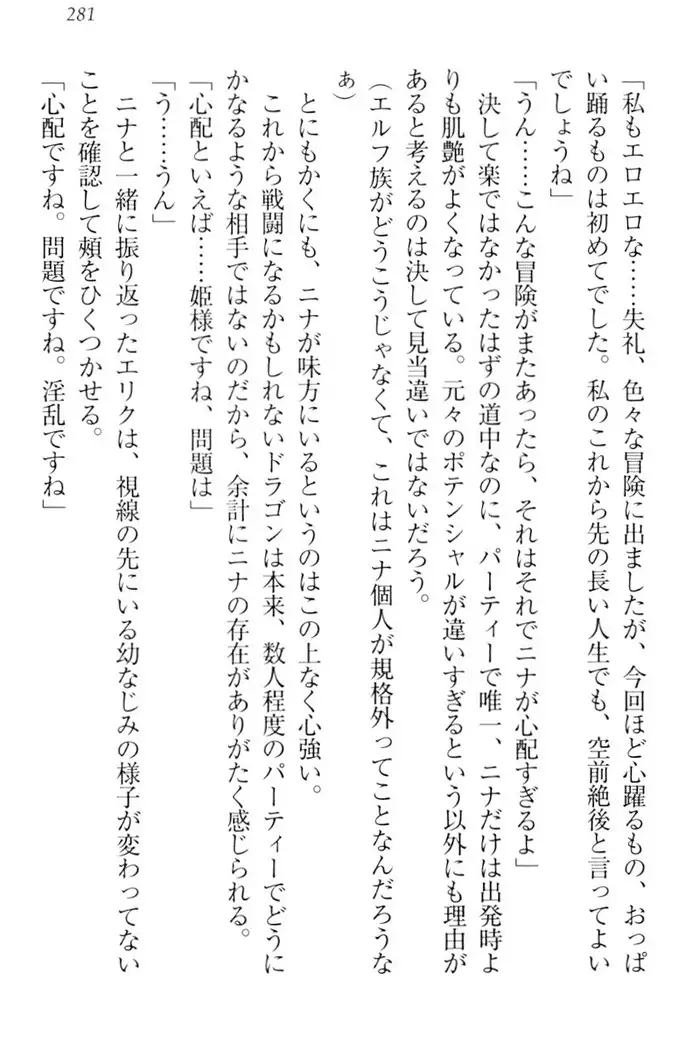 281
「私もエロエロな……失礼、色々な冒険に出ましたが、今回ほど心躍るもの、おっぱ
い踊るものは初めてでした。私のこれから先の長い人生でも、空前絶後と言ってよい
でしょうね」
「うん……こんな冒険がまたあったら、それはそれでニナが心配すぎるよ」
決して楽ではなかったはずの道中なのに、パーティーで唯一、ニナだけは出発時よ
りも肌艶がよくなっている。元々のポテンシャルが違いすぎるという以外にも理由が
あると考えるのは決して見当違いではないだろう。
（エルフ族がどうこうじゃなくて、これはニナ個人が規格外ってことなんだろうな
ぁ）
とにもかくにも、ニナが味方にいるというのはこの上なく心強い。
これから戦闘になるかもしれないドラゴンは本来、数人程度のパーティーでどうに
かなるような相手ではないのだから、余計にニナの存在がありがたく感じられる。
「心配といえば……姫様ですね、問題は」
「う……うん」
ニナと一緒に振り返ったエリクは、視線の先にいる幼なじみの様子が変わってない
ことを確認して頰をひくつかせる。
「心配ですね。問題ですね。淫乱ですね」